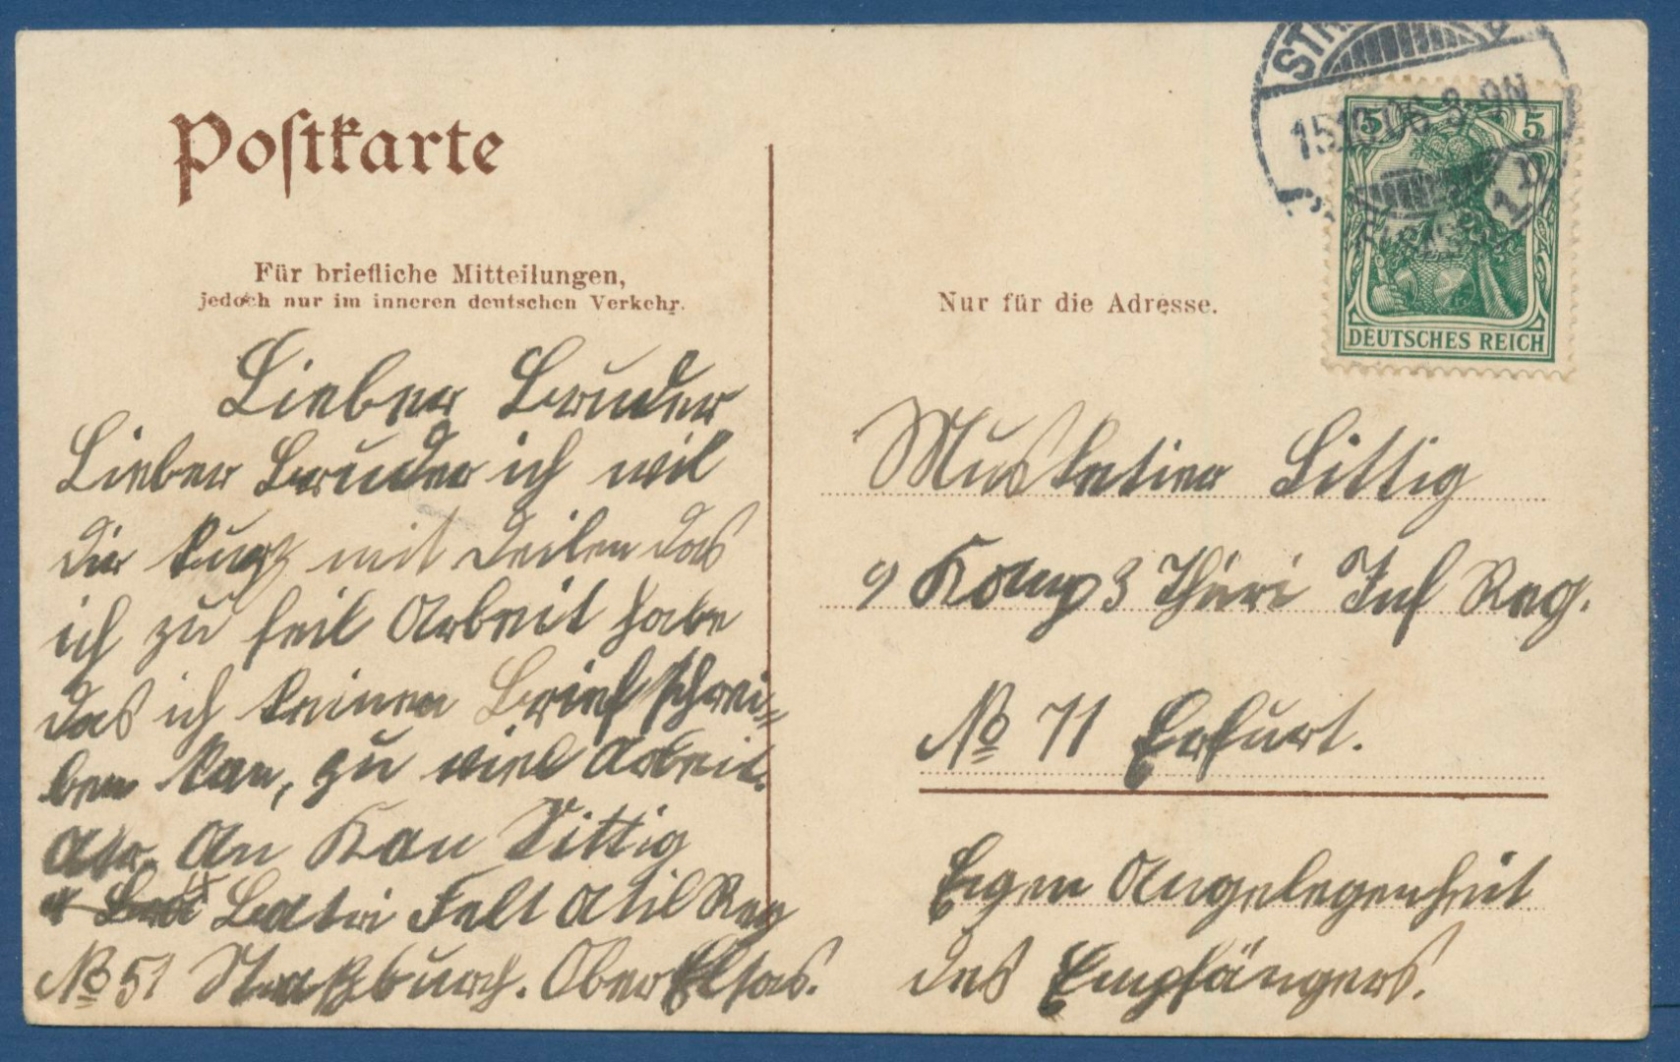 Postkarte
Für briefliche Mitteilungen,
jedoch nur im inneren deutschen Verkehr.
Lieber Bruder
Lieber Bruder ich wil
dir kurz mit deilen das
ich zu feil Arbeit habe
das ich keinen Brief schrei=
ben kan, zu viel Arbeit.
Adr. An Kan Littig
4 Batri Felt Atil Reg
No 51 Straßburg. Ober Elsas.
15.10.06 8-9N
5 5
DEUTSCHES REICH
Nur für die Adresse.
Musketier Littig
9 Komp 3 Thüri Inf Reg.
No 71 Erfurt.
Eigen Angelegenheit
des Empfängers.